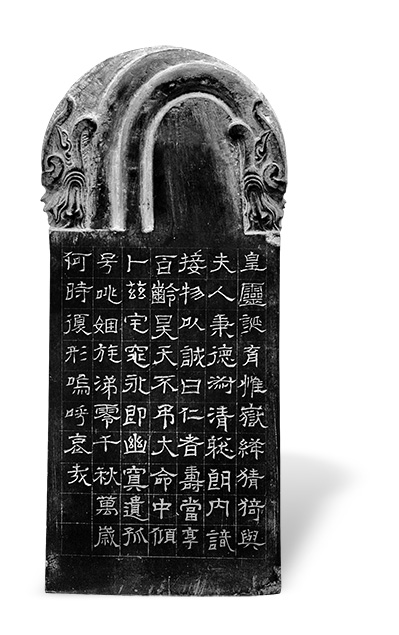 皇靈誕育惟嶽絳精猗與
夫人秉德淑清聡朗内識
接物以誠曰仁者壽當享
百齡昊天不弔大命中傾
卜兹宅窀永即幽冥遺孤
号咷姻族涕零千秋萬歲
何時復形嗚呼哀哉